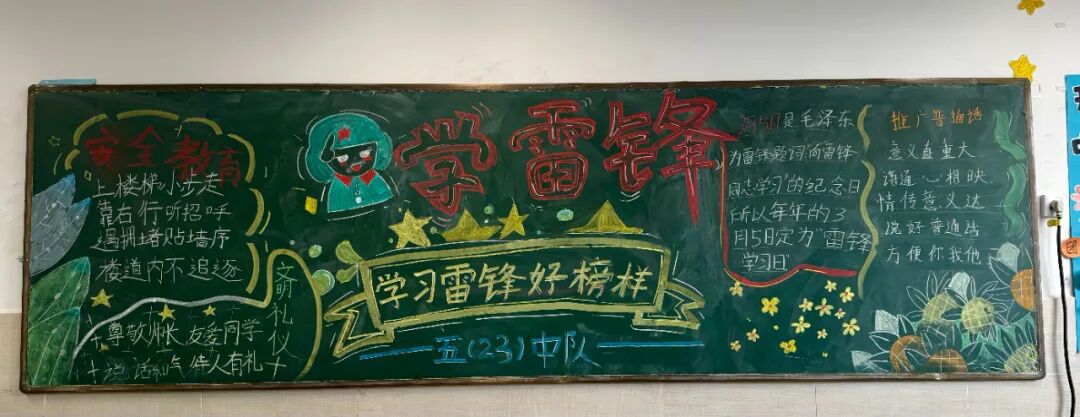 安全教育
上楼梯小步走
靠右行听招呼
遇拥堵贴墙序
楼道内不追逐
文萌礼仪
尊敬师长 友爱同学
说话和气 待人有礼
学雷锋
学习雷锋好榜样
五(23)中队
3月5日是毛泽东
为雷锋题词"向雷锋
同志学习"的纪念日
所以每年的3
月5日定为"雷锋
学习日"
推广普通话
意义直重大
心相映
情传意义达
说好普通话
方便你我他
团